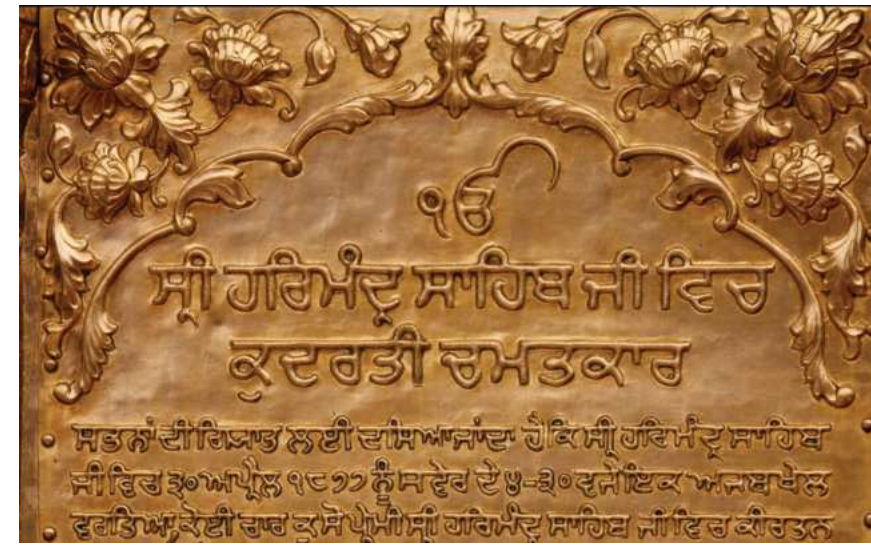 ੴ
ਸ੍ਰੀ ਹਰਿਮੰਦ੍ਰ ਸਾਹਿਬ ਜੀ ਵਿਚ
ਕੁਦਰਤੀ ਚਮਤਕਾਰ
ਸਭਨਾਂ ਦੀ ਗਿਆਤ ਲਈ ਦਸਿਆ ਜਾਂਦਾ ਹੈ ਕਿ ਸ੍ਰੀ ਹਰਿਮੰਦ੍ਰ ਸਾਹਿਬ
ਜੀ ਵਿਚ ੩੦ ਅਪ੍ਰੈਲ ੧੮੭੭ ਨੂੰ ਸਵੇਰ ਦੇ ੪-੩੦ ਵਜੇ ਇਕ ਅਜਬ ਖੇਲ
ਵਰਤਿਆ, ਕੋਈ ਚਾਰ ਕੁ ਸੋ ਪ੍ਰੇਮੀ ਸ੍ਰੀ ਹਰਿਮੰਦ੍ਰ ਸਾਹਿਬ ਜੀ ਵਿਚ ਕੀਰਤਨ